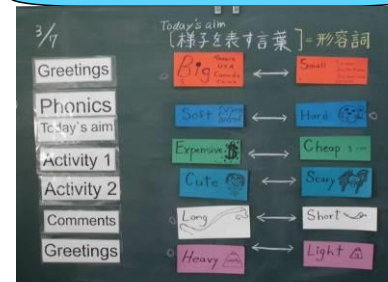 3/7
Today's aim
[様子を表す言葉]=形容詞
Greetings
Phonics
Today's aim
Activity 1
Activity 2
Comments
Greetings
Big
Russia
U.S.A
Canada
China
Small
Soft
Hard
Expensive $
Cheap
Cute
Scary
Long
Short
Heavy
Light